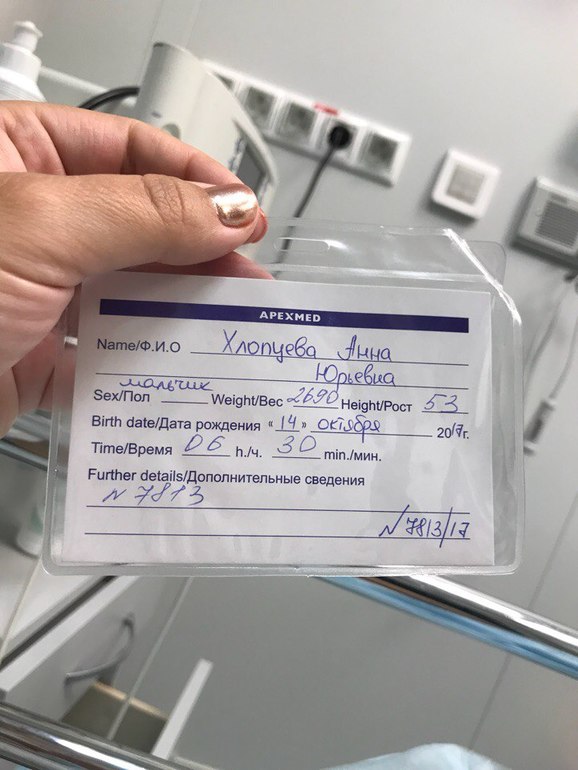 APEXMED
Name/Ф.И.О Хлопцева Анна
Юрьевна
Sex/Пол мальчик Weight/Вес 2690 Height/Рост 53
Birth date/Дата рождения «14» октября 2017г.
Time/Время 06 h./ч. 30 min./мин.
Further details/Дополнительные сведения
N 7813
N 7813/17